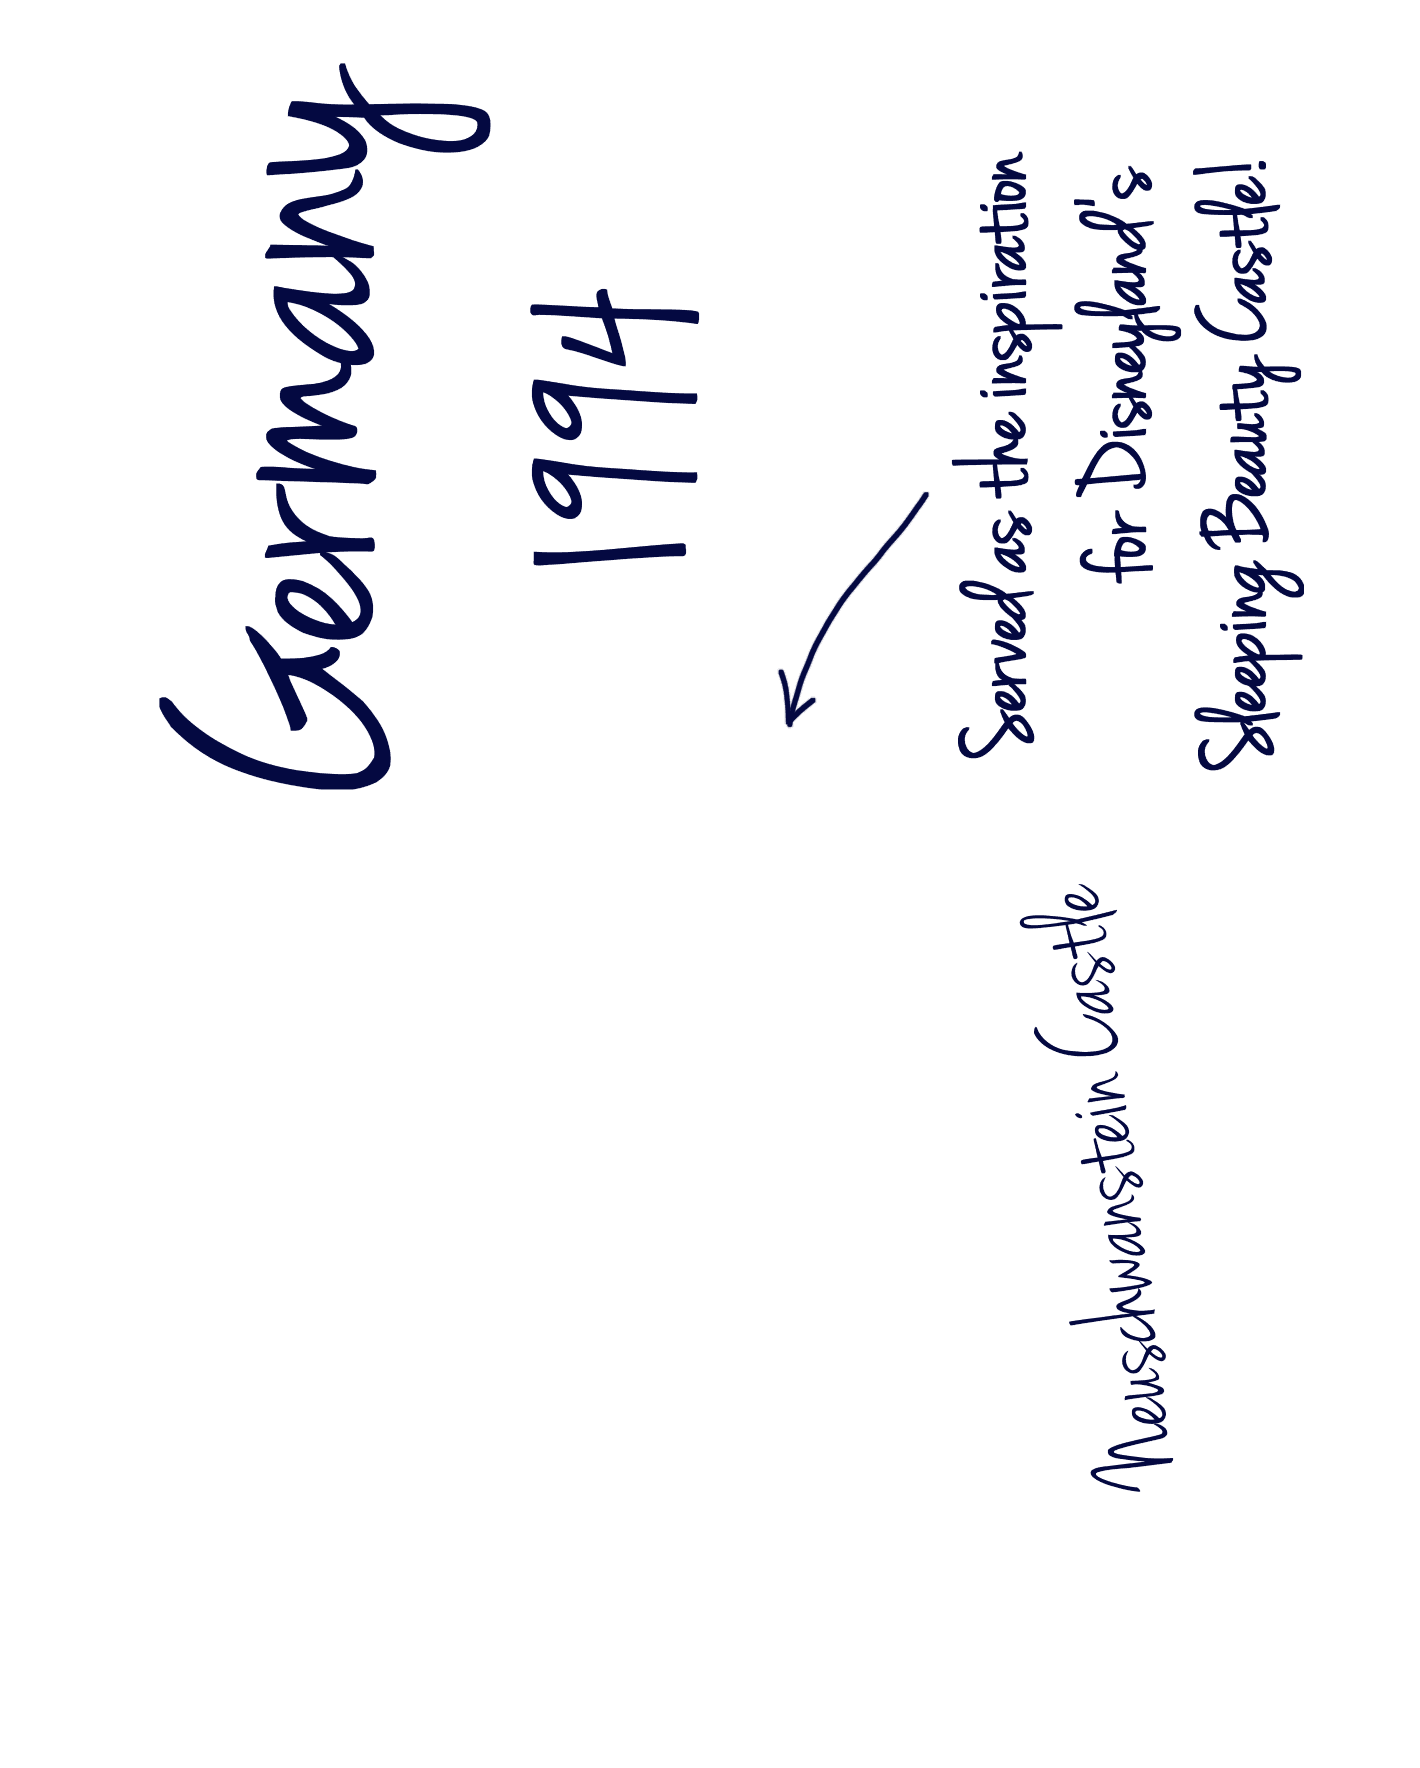 Germany
1994
Served as the inspiration
for Disneyland's
Sleeping Beauty Castle!
Neuschwanstein Castle